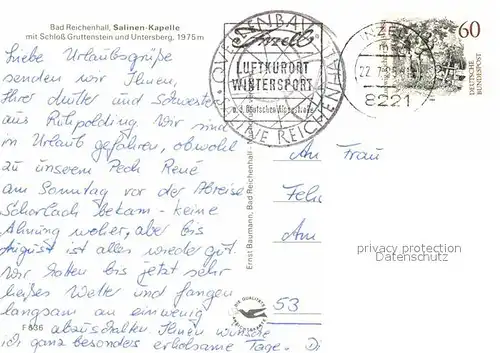 Bad Reichenhall, Salinen-Kapelle
mit Schloß Gruttenstein und Untersberg, 1975 m
Liebe Urlaubsgrüße
senden wir Ihnen,
Ihrer Mutter und Schwester
aus Ruhpolding. Wir sind
in Urlaub gefahren, obwohl
zu unserem Pech René
am Sonntag vor der Abreise
Scharlach bekam - keine
Ahnung woher, aber bis
August ist alles wieder gut.
Wir hatten bis jetzt sehr
heißes Wetter und fangen
langsam an ein wenig
abzuschalten. Ihnen wünsche
ich ganz besonders erholsame Tage.
F 636
Ernst Baumann, Bad Reichenhall
Inzell
LUFTKURORT
WINTERSPORT
a. d. Deutschen Alpenstraße
INZELL
8221
60
DEUTSCHE
BUNDESPOST
An Frau
An
53
privacy protection
Datenschutz